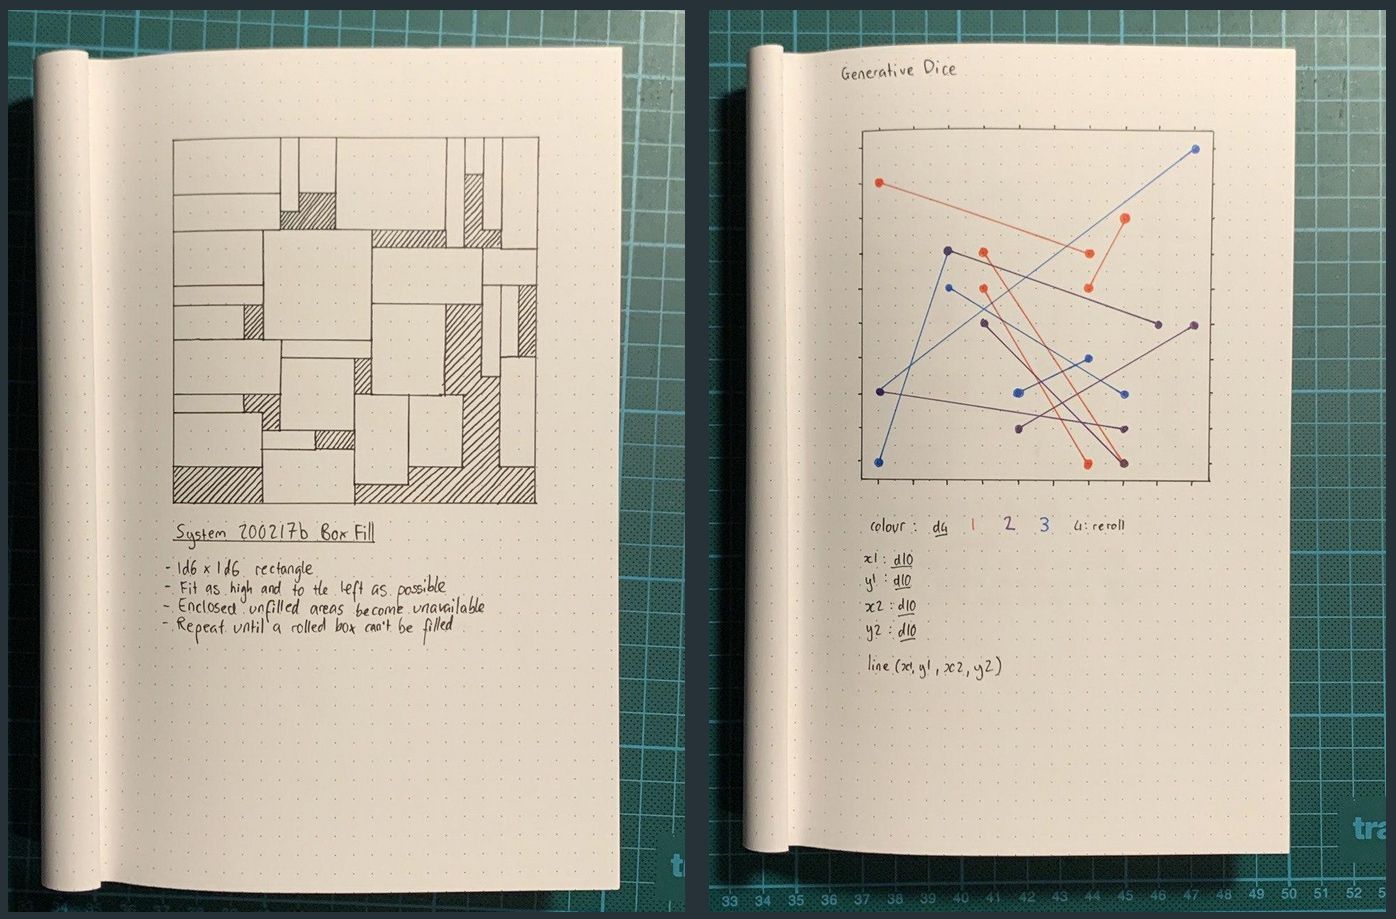 System 200217b Box Fill
- 1d6 x 1d6 rectangle
- Fit as high and to the left as possible
- Enclosed unfilled areas become unavailable
- Repeat until a rolled box can't be filled
Generative Dice
colour : d4 1 2 3 4: reroll
x1 : d10
y1 : d10
x2 : d10
y2 : d10
line (x1, y1, x2, y2)
tra
33 34 35 36 37 38 39 40 41 42 43 44 45 46 47 48 49 50 51 52